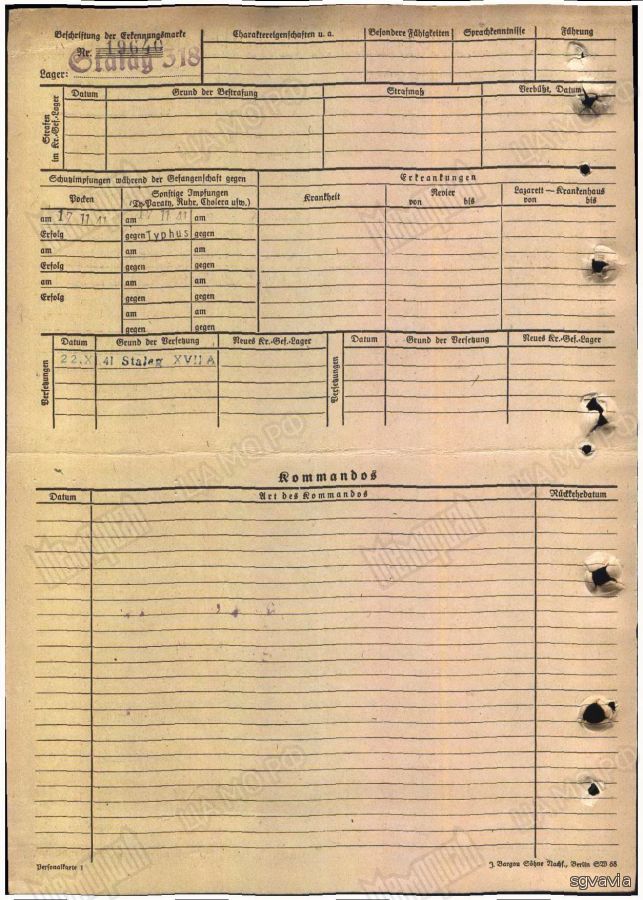 Beschriftung der Erkennungsmarke
Nr. 19640
Stalag 318
Lager:
Charaktereigenschaften u. a.
Besondere Fähigkeiten
Sprachkenntnisse
Führung
Strafen im Kr.-Gef.-Lager
Datum
Grund der Bestrafung
Strafmaß
Verbüßt, Datum
Schutzimpfungen während der Gefangenschaft gegen
Erkrankungen
Pocken
Sonstige Impfungen
(Ty.-Paraty, Ruhr, Cholera usw.)
Krankheit
Revier
von bis
Lazarett – Krankenhaus
von bis
am 17 11 41 am 17 11 41 am
Erfolg gegen Typhus gegen
am am am
Erfolg gegen gegen
am am am
Erfolg gegen gegen
am am
gegen gegen
Versetzungen
Datum Grund der Versetzung Neues Kr.-Gef.-Lager
22.X .41 Stalag XVII A
Versetzungen
Datum Grund der Versetzung Neues Kr.-Gef.-Lager
Kommandos
Datum Art des Kommandos Rückkehrdatum
Personalkarte 1
J. Bargou Söhne Nachf., Berlin SW 68
sgvavia
ЦАМО РФ
Мемориал